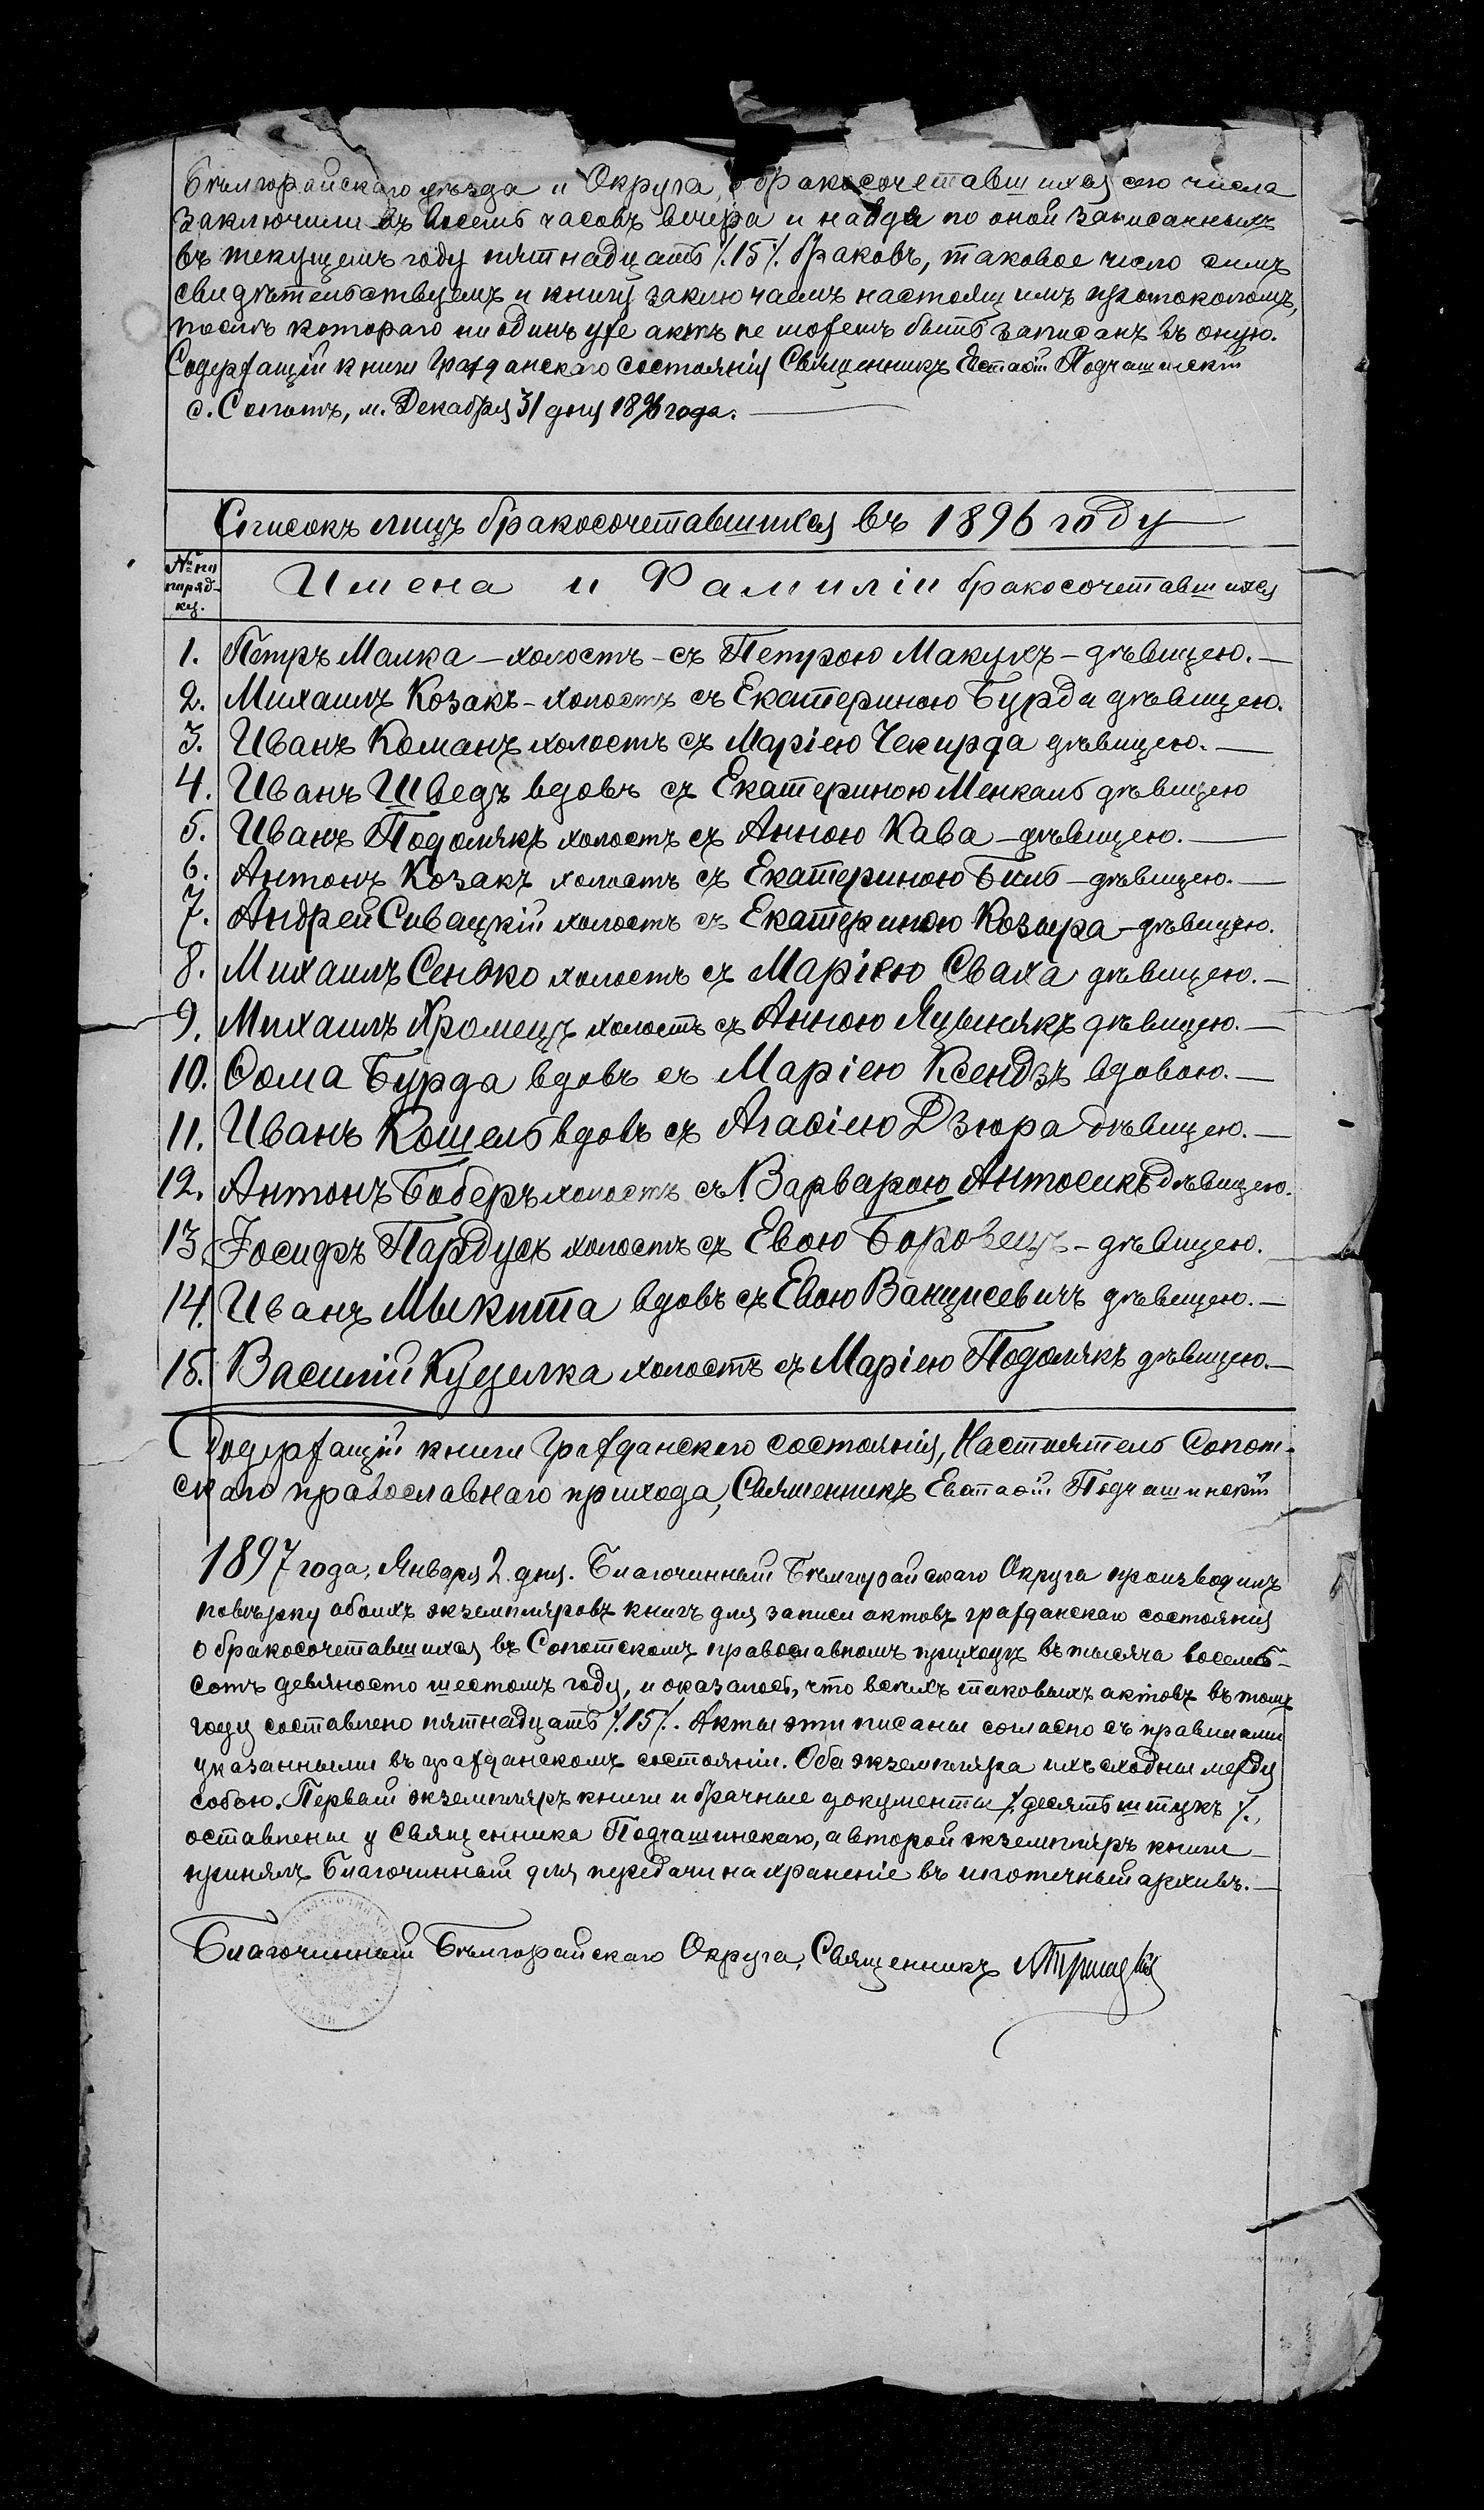 Бѣлгорайскаго уѣзда и Округа, о бракосочетавшихся сего числа
заключили въ восемь часовъ вечера и найдя по оной записанныхъ
въ текущемъ году пятнадцать /.15/. браковъ, таковое число симъ
свидѣтельствуемъ и книгу заключаемъ настоящимъ протоколомъ,
послѣ котораго ни одинъ уже актъ не можетъ быть записанъ въ оную.
Содержащій книги Гражданскаго состоянія Священникъ Евстафій Подчашинскій
с. Сопотъ, м. Декабря 31 дня 1896 года.
Списокъ лицъ бракосочетавшихся въ 1896 году
№ по порядку.
Имена и Фамиліи бракосочетавшихся
1. Петръ Малка – холостъ – съ Петрою Макухъ – дѣвицею. –
2. Михаилъ Козакъ – холостъ съ Екатериною Бурда дѣвицею.
3. Иванъ Команъ холостъ съ Маріею Чекирда дѣвицею. –
4. Иванъ Шведъ вдовъ съ Екатериною Менкаль дѣвицею
5. Иванъ Подолякъ холостъ съ Анною Кава – дѣвицею. –
6. Антонъ Козакъ холостъ съ Екатериною Биль – дѣвицею. –
7. Андрей Сивацкій холостъ съ Екатериною Козыра – дѣвицею.
8. Михаилъ Сенько холостъ съ Маріею Сваха дѣвицею. –
9. Михаилъ Хромецъ холостъ съ Анною Яцынякъ дѣвицею. –
10. Ѳома Бурда вдовъ съ Маріею Ксендзъ вдовою. –
11. Иванъ Кошель вдовъ съ Агафіею Дзюра дѣвицею. –
12. Антонъ Боберъ холостъ съ Варварою Антосикъ дѣвицею.
13. Іосифъ Пардусъ холостъ съ Евою Боровецъ – дѣвицею.
14. Иванъ Мыкита вдовъ съ Евою Ванцисевичъ дѣвицею. –
15. Василій Куделка холостъ съ Маріею Подолякъ дѣвицею. –
Содержащій книги Гражданскаго состоянія, Настоятель Сопот-
скаго православнаго прихода, Священникъ Евстафій Подчашинскій
1897 года, Января 2 дня. Благочинный Бѣлгорайскаго Округа производилъ
повѣрку обоихъ экземпляровъ книгъ для записи актовъ гражданскаго состоянія
о бракосочетавшихся въ Сопотскомъ православномъ приходѣ въ тысяча восемь-
сотъ девяносто шестомъ году, и оказалось, что всѣхъ таковыхъ актовъ въ томъ
году составлено пятнадцать /.15/. Акты эти писаны согласно съ правилами
указанными въ гражданскомъ состояніи. Оба экземпляра ихъ сходны между
собою. Первый экземпляръ книги и брачные документы /. десять штукъ /.,
оставлены у Священника Подчашинскаго, а второй экземпляръ книги
принялъ Благочинный для передачи на храненіе въ ипотечный архивъ. –
Благочинный Бѣлгорайскаго Округа, Священникъ